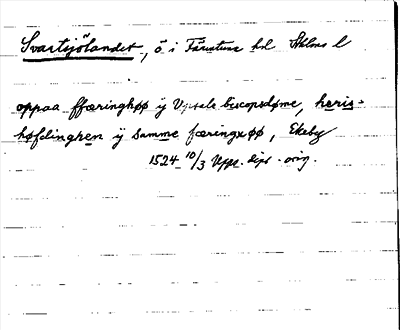 Svartsjölandet, ö i Färentuna hd Sthlms l
oppaa ffæringhøø ÿ Vpsala biscopsdøme, heris-
høfdingren ÿ samme færingxøø, Ekeby
1524 10/3 Upps. dipl. orig.